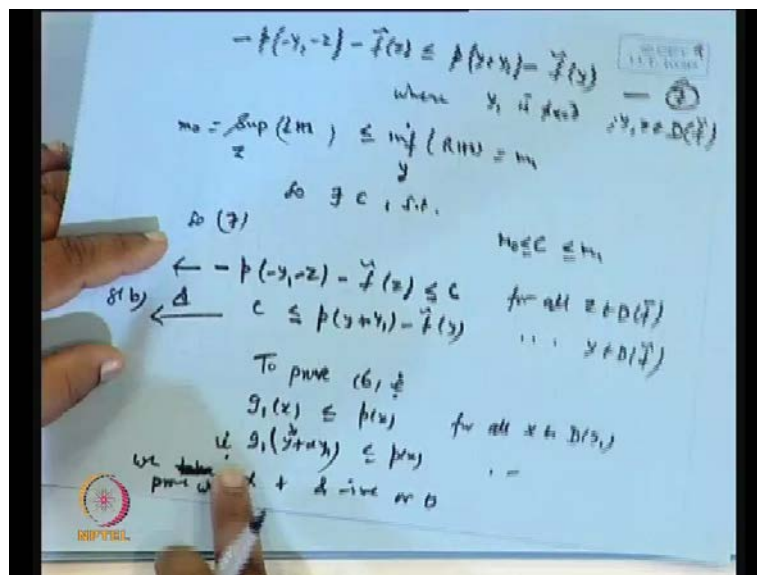 − p(−y₁−z) − f̃(z) ≤ p(y+y₁) − f̃(y) — (7)
where y₁ is fixed ; y, z ∈ D(f̃)
m₀ = Sup_z (LHS) ≤ inf_y (RHS) = m₁
So ∃ C, s.t.
m₀ ≤ C ≤ m₁
So (7)
← − p(−y₁−z) − f̃(z) ≤ C for all z ∈ D(f̃)
8(b) ← C ≤ p(y+y₁) − f̃(y) ,, , y ∈ D(f̃)
To prove (6)
g₁(x) ≤ p(x) for all x in D(g₁)
g₁(y+αy₁) ≤ p(x) , –
we
prove α + & -ive or 0
NPTEL